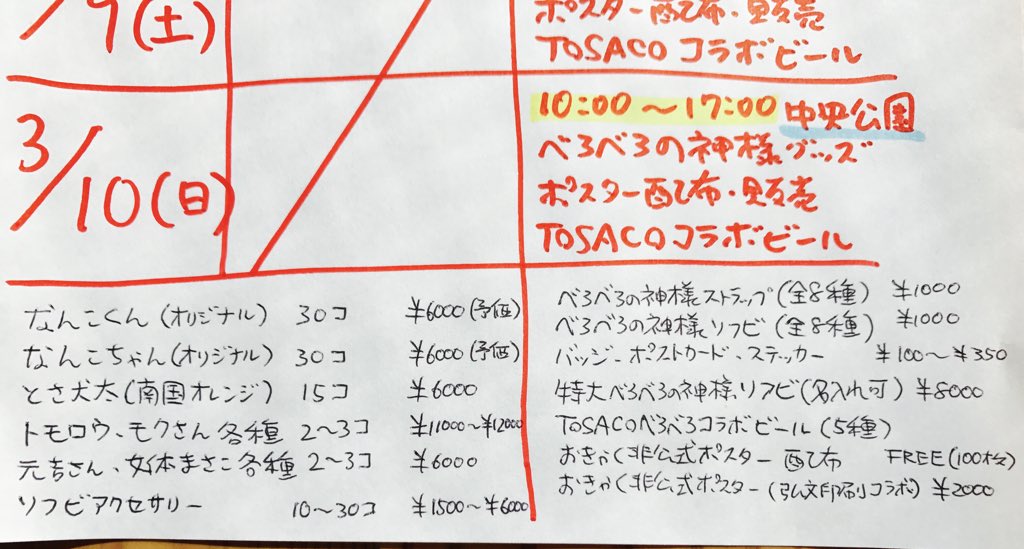 /9(土)
ポスター配布・販売
TOSACO コラボビール
3/10(日)
10:00〜17:00 中央公園
べろべろの神様グッズ
ポスター配布・販売
TOSACOコラボビール
なんこくん(オリジナル) 30コ ¥6000(予価)
なんこちゃん(オリジナル) 30コ ¥6000(予価)
とさ犬太(南国オレンジ) 15コ ¥6000
トモロウ、モクさん各種 2〜3コ ¥11000〜¥12000
元吉さん、女体まさこ各種 2〜3コ ¥6000
ソフビアクセサリー 10〜30コ ¥1500〜¥6000
べろべろの神様ストラップ(全8種) ¥1000
べろべろの神様ソフビ(全8種) ¥1000
バッジ、ポストカード、ステッカー ¥100〜¥350
特大べろべろの神様ソフビ(名入れ可) ¥8000
TOSACOべろべろコラボビール(5種)
おきゃく非公式ポスター 配布 FREE(100枚)
おきゃく非公式ポスター(弘文印刷コラボ) ¥2000